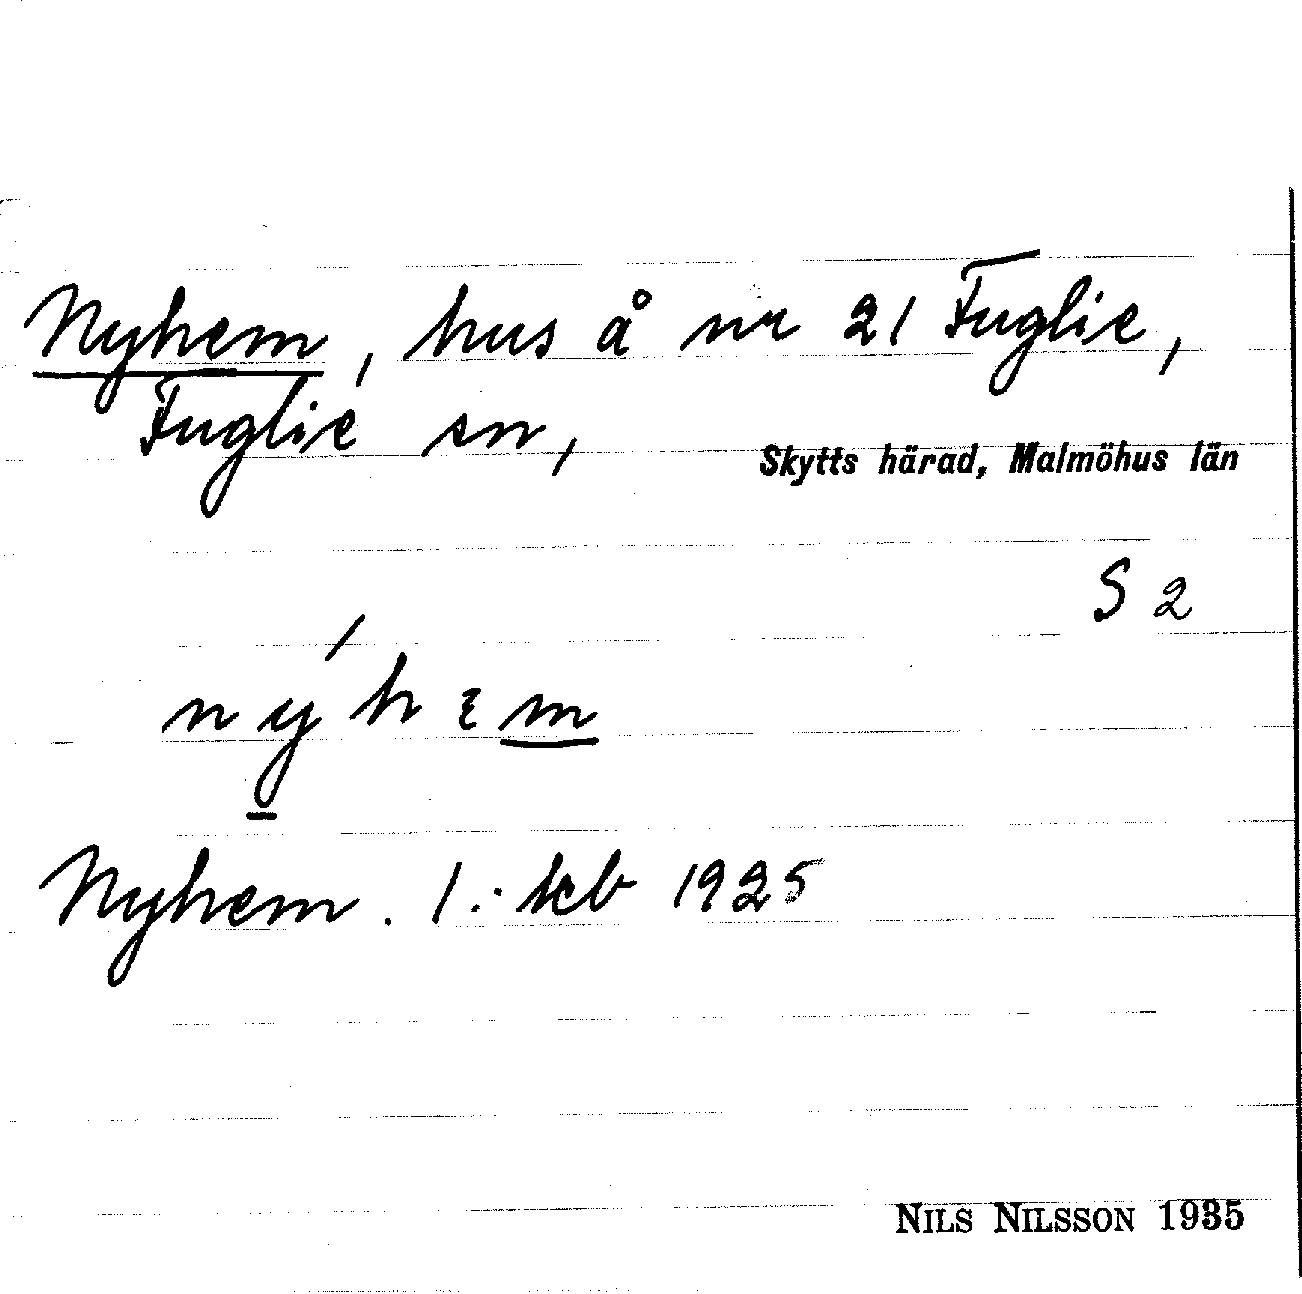 Nyhem, hus å nr 21 Fuglie,
Fuglie sn,
Skytts härad, Malmöhus län
S 2
nýhɛm
Nyhem. 1: kb 1925
NILS NILSSON 1935